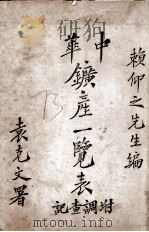 賴仰之先生編
中華
鑛產一覽表
坿調查記
袁克文署